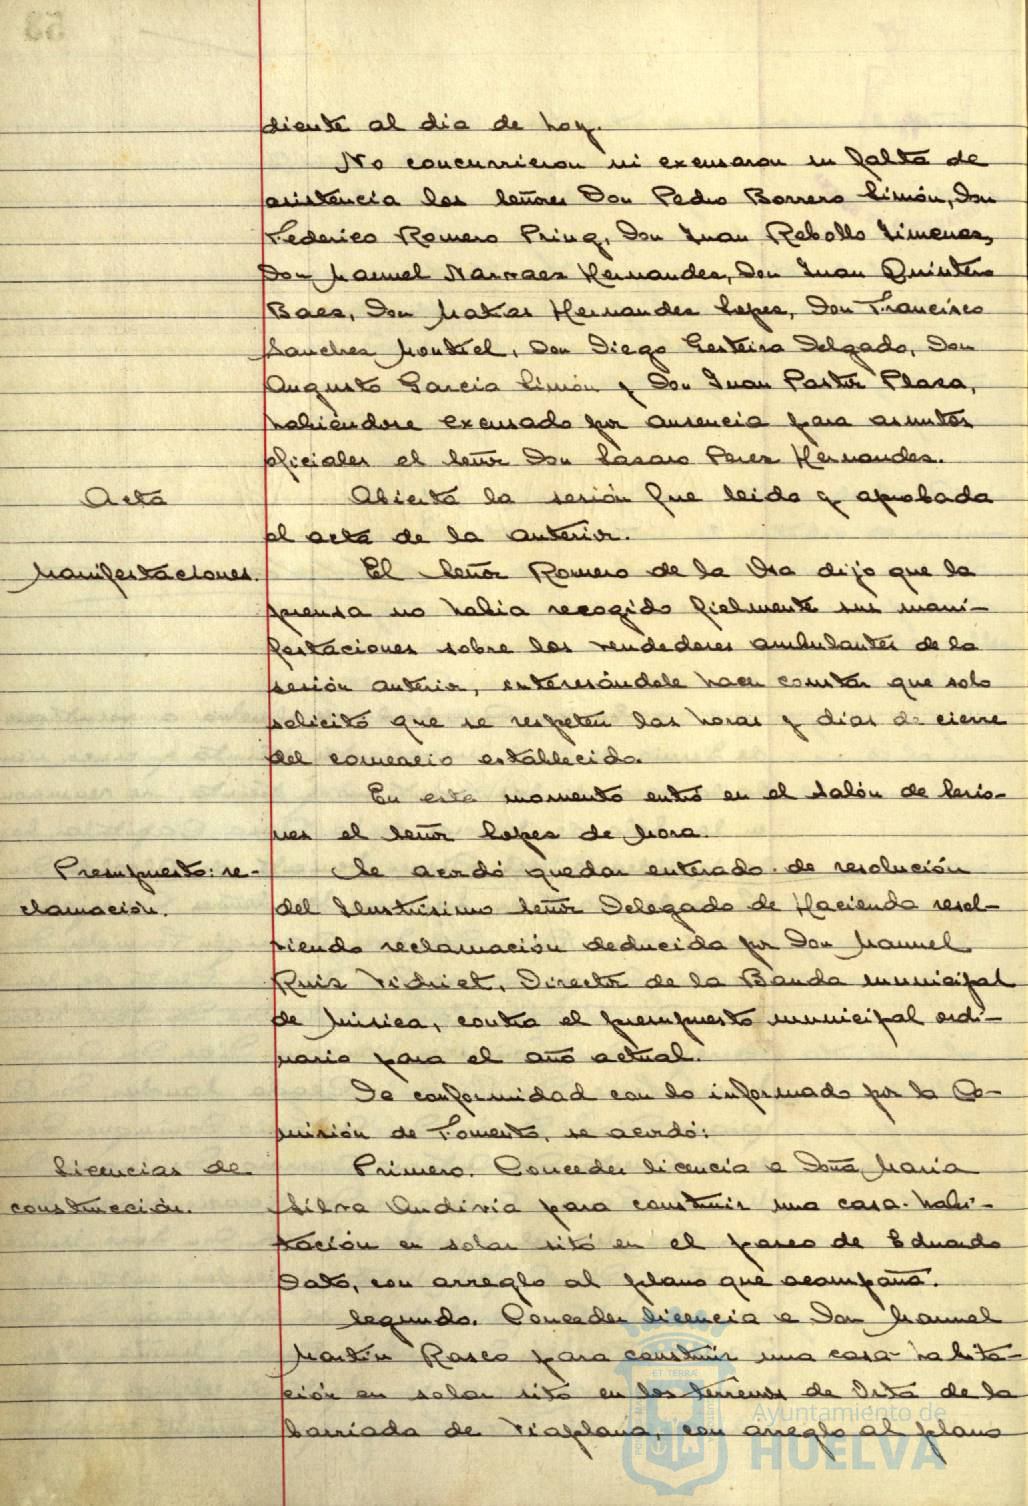 diente al dia de hoy.
No concurrieron ni excusaron su falta de
asistencia los Señores Don Pedro Borrero Limón, Don
Federico Romero Pring, Don Juan Rebollo Jimenez,
Don Manuel Narvaez Hernandez, Don Juan Quintero
Baez, Don Matias Hernandez Lopez, Don Francisco
Sanchez Montiel, Don Diego Gesteira Delgado, Don
Augusto Garcia Limón y Don Juan Pastor Plaza,
habiéndose excusado por ausencia para asuntos
oficiales el Señor Don Lazaro Perez Hernandez.
Acta
Abierta la sesión fue leida y aprobada
el acta de la anterior.
Manifestaciones.
El Señor Romero de la Osa dijo que la
prensa no habia recogido fielmente sus mani-
festaciones sobre los vendedores ambulantes de la
sesión anterior, interesándole hacer constar que solo
solicitó que se respeten las horas y dias de cierre
del comercio establecido.
En este momento entró en el Salón de Sesio-
nes el Señor Lopez de Mora.
Presupuesto: re-
clamación.
Se acordó quedar enterado de resolución
del Ilustrisimo Señor Delegado de Hacienda resol-
viendo reclamación deducida por Don Manuel
Ruiz Vidriet, Director de la Banda municipal
de Musica, contra el presupuesto municipal ordi-
nario para el año actual.
De conformidad con lo informado por la Co-
misión de Fomento, se acordó:
Licencias de
construcción.
Primero. Conceder licencia a Doña Maria
Silva Andivia para construir una casa-habi-
tación en solar sito en el paseo de Eduardo
Dato, con arreglo al plano que acompaña.
Segundo. Conceder licencia a Don Manuel
Martin Rasco para construir una casa-habita-
ción en solar sito en los terrenos de Orta de la
barriada de Viaplana, con arreglo al plano
Ayuntamiento de
HUELVA